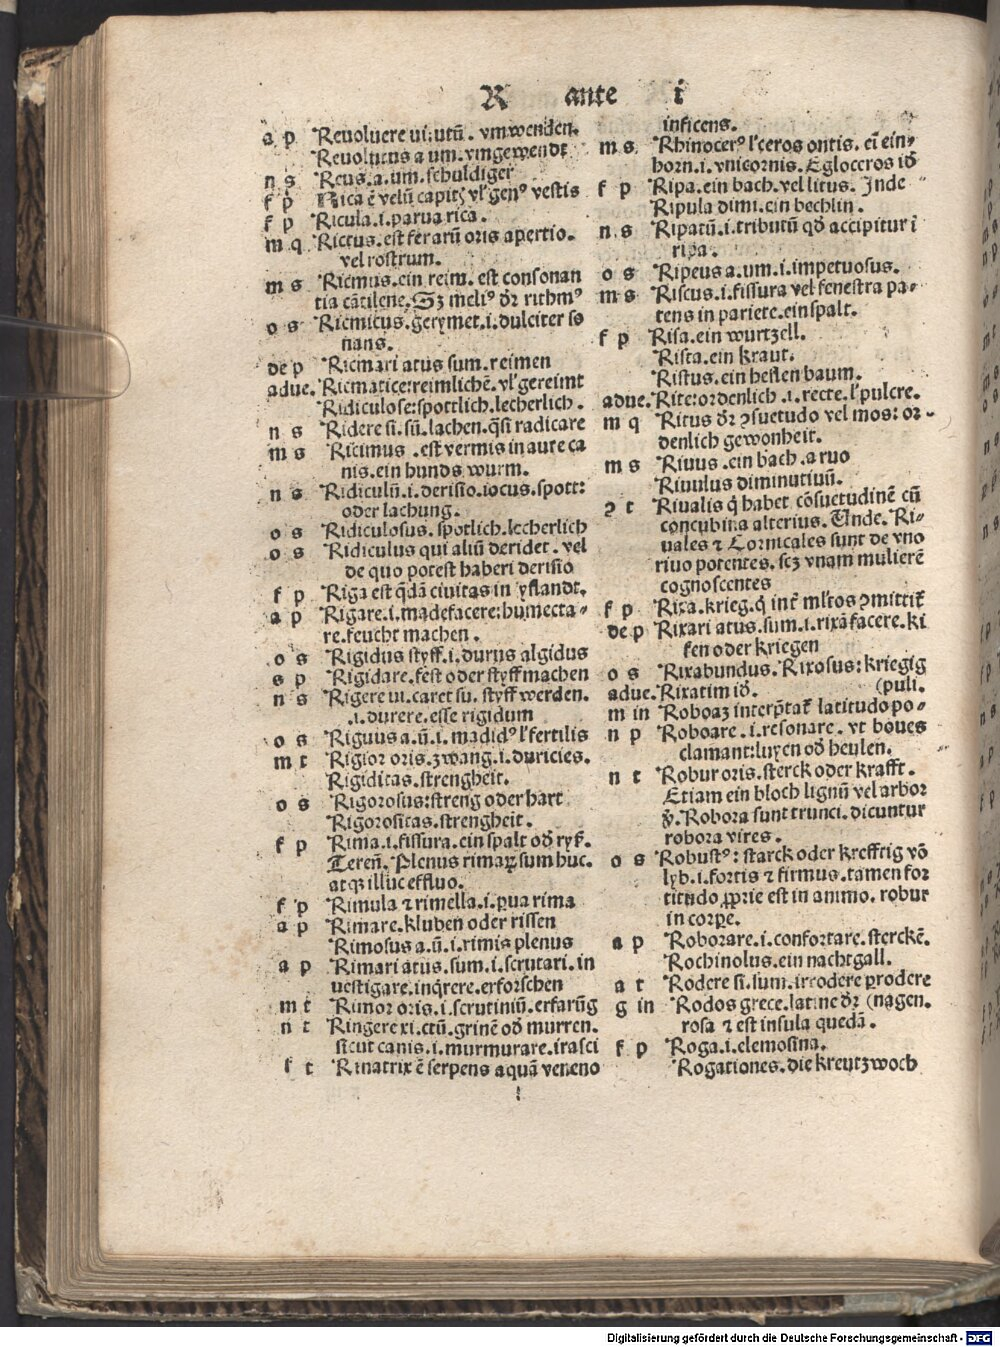 R ante i
a p Reuoluere ui.utū. vmwenden.
Reuolutus a um.vmgewendt
n s Reus.a.um.schuldiger
f p Rica ē velū capitꝭ vl' genꝰ vestis
f p Ricula.i.parua rica.
m q Rictus.est ferarū oris apertio.
vel rostrum.
m s Ricmus.ein reim. est consonan
tia cātilene. Sꝫ meliꝰ dr̄ rithmꝰ
o s Ricmicus.gerymet.i.dulciter so
nans.
de p Ricmari atus sum.reimen
adue. Ricmatice:reimlichē.vl' gereimt
Ridiculose:spottlich.lecherlich.
n s Ridere si.sū.lachen.q̄si radicare
m s Ricimus.est vermis in aure ca
nis.ein hunds wurm.
n s Ridiculū.i.derisio.iocus.spott:
oder lachung.
o s Ridiculosus.spotlich.lecherlich
o s Ridiculus qui aliū deridet.vel
de quo potest haberi derisio
f p Riga est q̄dā ciuitas in yflandt.
a p Rigare.i.madefacere:humecta-
re.feucht machen.
o s Rigidus styff.i.durus algidus
s p Rigidare.fest oder styff machen
n s Rigere ui.caret su. styff werden.
.i.durere.esse rigidum
o s Riguus a.ū.i.madidꝰ l' fertilis
m t Rigor oris.zwang.i.duricies.
Rigiditas.strengheit.
o s Rigorosus:streng oder hart
Rigorositas.strengheit.
f p Rima.i.fissura.ein spalt od̄ ryß.
Tereñ. Plenus rimaꝝ sum huc.
atqꝫ illuc effluo.
f p Rimula ⁊ rimella.i.ꝑua rima
a p Rimare.kluben oder rissen
Rimosus a.ū.i.rimis plenus
a p Rimari atus.sum.i.scrutari.in
uestigare.inq̄rere.erforschen
m t Rimor oris.i.scrutiniū.erfarūg
n t Ringere xi.ctū.grinē od̄ murren.
sicut canis.i.murmurare.irasci
f t Rinatrix ē serpens aquā veneno
inficens.
m s Rhinocerꝰ l' ceros ontis. eī ein-
horn.i.vnicornis. Egloceros id̄
f p Ripa.ein bach.vel litus. Inde
Ripula dimi.ein bechlin.
n s Ripatū.i.tributū qd̄ accipitur ī
ripa.
o s Ripeus a.um.i.impetuosus.
m s Riscus.i.fissura vel fenestra pa-
tens in pariete.ein spalt.
f p Risa.ein wurtzell.
Rista.ein kraut.
Ristus.ein heslen baum.
adue. Rite:ordenlich.i.recte.l' pulcre.
m q Ritus dr̄ ꝯsuetudo vel mos: or-
denlich gewonheit.
m s Riuus.ein bach.a ruo
Riuulus diminutiuū.
ꝯ t Riualis q̄ habet cōsuetudinē cū
concubina alterius. Unde. Ri-
uales ⁊ Cornicales sunt de vno
riuo potentes.scꝫ vnam mulierē
cognoscentes
f p Rixa.krieg.q̄ int̄ ml'tos ꝯmittit̄
de p Rixari atus.sum.i.rixā facere.ki
fen oder kriegen
o s Rixabundus. Rixosus: kriegig
adue. Rixatim id̄. (puli.
m in Roboaꝫ interp̄tat̄ latitudo po-
n p Roboare.i.resonare. vt boues
clamant:luyen od̄ heulen.
n t Robur oris.sterck oder krafft.
Etiam ein bloch lignū vel arbor
ꝟ. Robora sunt trunci.dicuntur
robora vires.
o s Robustꝰ: starck oder krefftig vō
lyb.i.fortis ⁊ firmus.tamen for
titudo ꝓprie est in animo. robur
in corpe.
a p Roborare.i.confortare.sterckē.
Rochinolus.ein nachtgall.
a t Rodere si.sum.irrodere prodere
g in Rodos grece.latine dr̄ (nagen.
rosa ⁊ est insula quedā.
f p Roga.i.elemosina.
Rogationes.die kreutzwoch
Digitalisierung gefördert durch die Deutsche Forschungsgemeinschaft - DFG